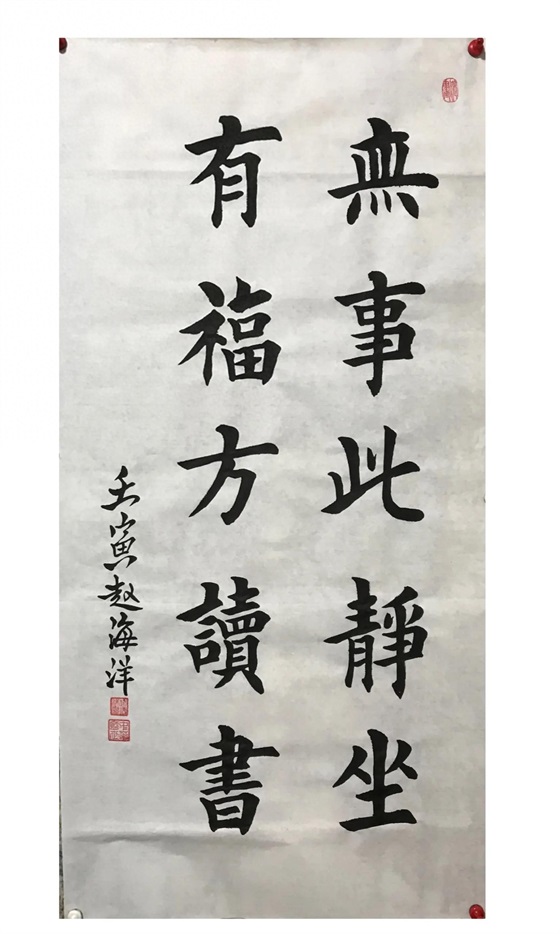 無事此靜坐
有福方讀書
壬寅趙海洋